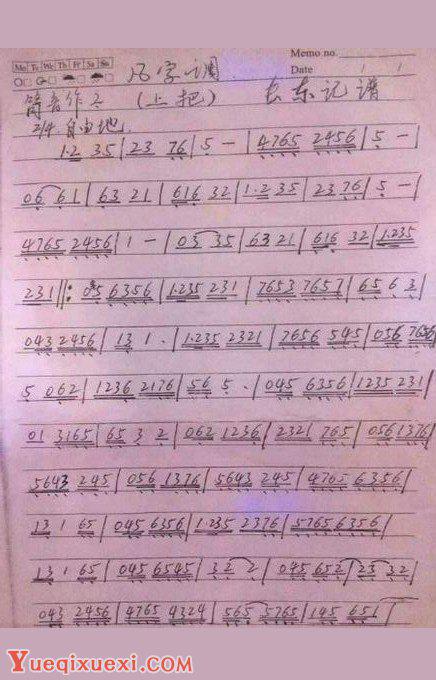 Memo no.
Mo Tu We Th Fr Sa Su
Date / /
字调
筒音作2 (上把) 长东记谱
2/4 自由地
1·2 35 | 23 76 | 5 - | 4765 2456 | 5 -
06 61 | 63 21 | 616 32 | 1·2 35 | 23 76 | 5 -
4765 2456 | 1 - | 03 35 | 63 21 | 616 32 | 1·235
231 ‖: 6356 | 1·235 231 | 7653 7657 | 65 6 3 |
043 2456 | 13 1 · | 1·235 2321 | 7656 545 | 056 7656
5 062 | 1236 2176 | 56 5 · | 045 6356 | 1235 231 |
01 3165 | 65 3 2 | 062 1236 | 2321 765 | 056 1376 |
5643 245 | 056 1376 | 5643 245 | 4765 6356 |
13 1 65 | 045 6356 | 1·235 2376 | 5765 6356 |
13 1 65 | 045 6545 | 32 2 | 045 652 | 23 32 |
043 2456 | 4765 4324 | 565 5765 | 145 651 |
Yueqixuexi.com